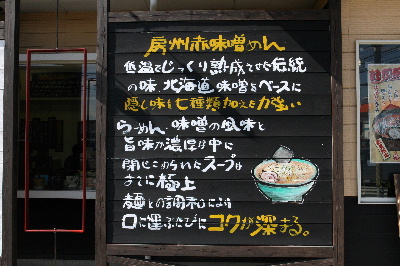 房州赤味噌めん
低温でじっくり熟成させた伝統
の味 北海道味噌をベースに
隠し味を七種類加えた力強い
らーめん 味噌の風味と
旨味が濃厚な中に
閉じこめられたスープは
まさに極上
麺との調和により
口に運ぶたびにコクが深まる。